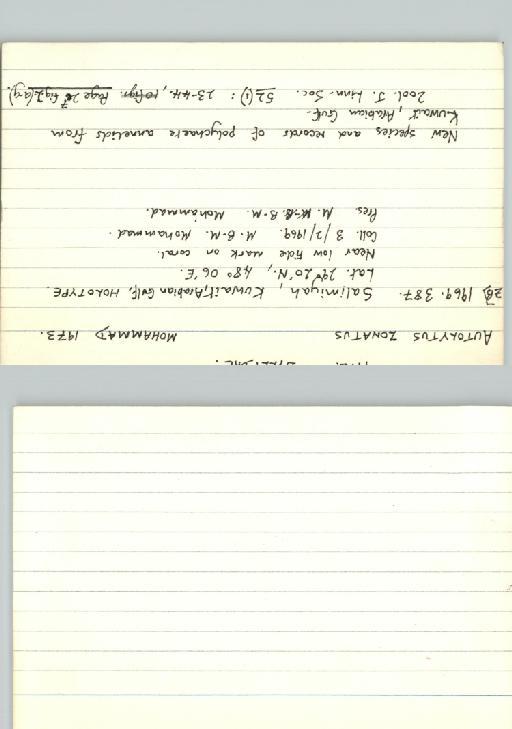 AUTOLYTUS ZONATUS MOHAMMAD 1973.
1969.387. Salimiyah, Kuwait, Arabian Gulf, HOLOTYPE.
Lat. 29° 20'N., 48° 06'E.
Near low tide mark on coral.
Coll. 3/2/1969. M.B-M. Mohammad.
Pres. M.B-M. Mohammad.
New species and records of polychaete annelids from
Kuwait, Arabian Gulf.
Zool. J. Linn. Soc. 52(1): 23-44, 10 figs. Page 27 fig 2(a-g).